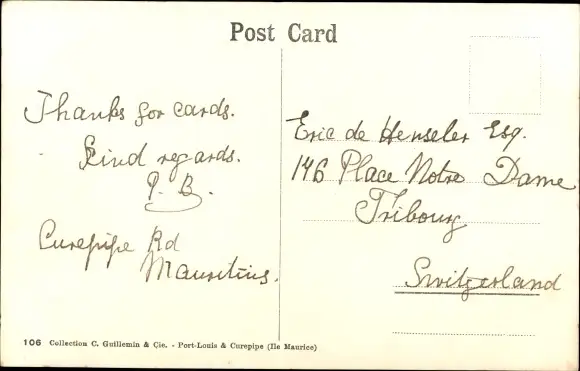 Post Card
Thanks for cards.
Kind regards.
P. B.
Curepipe Rd
Mauritius.
Eric de Henseler Esq.
146 Place Notre Dame
Fribourg
Switzerland
106 Collection C. Guillemin & Cie. - Port-Louis & Curepipe (Ile Maurice)